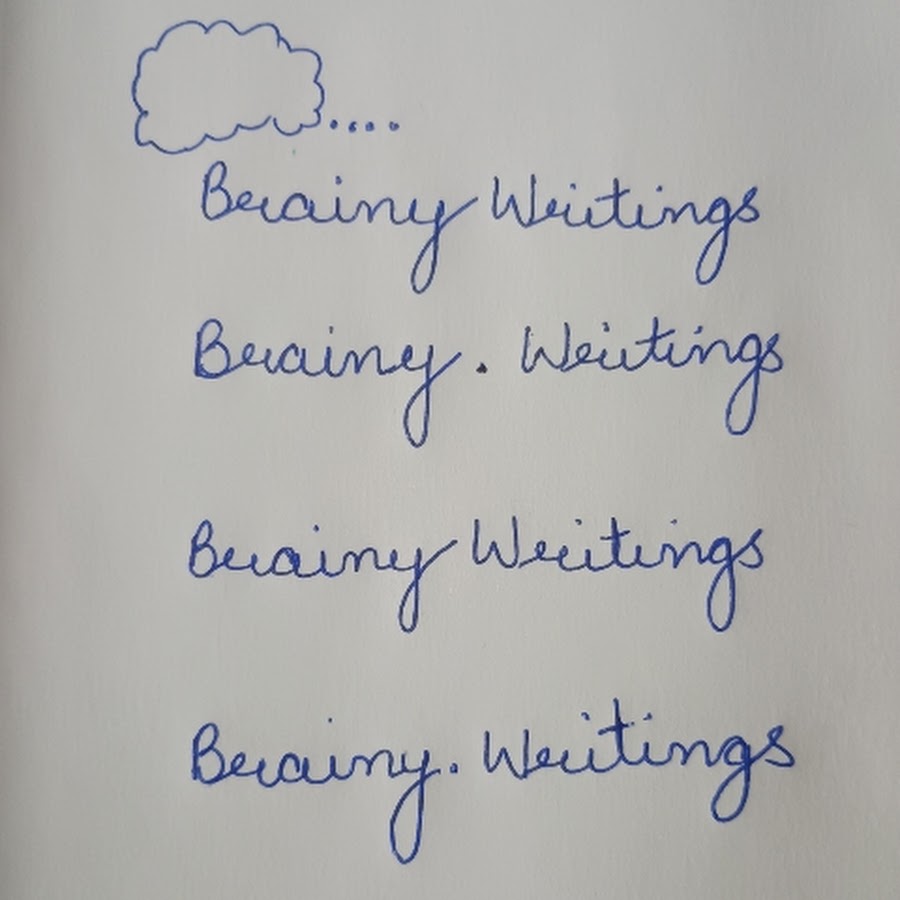 ....
Brainy Writings
Brainy . Writings
Brainy Writings
Brainy. Writings